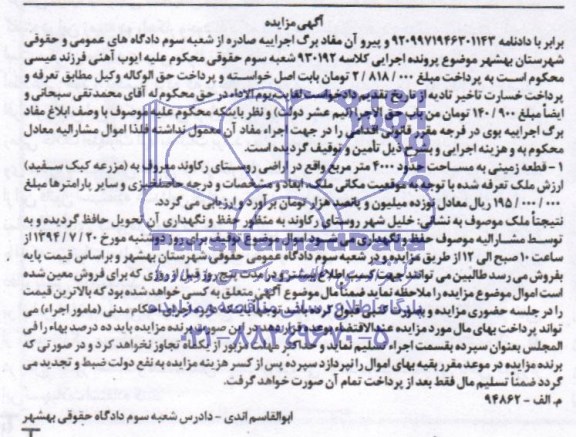 آگهی مزایده
برابر با دادنامه ۹۲۰۹۹۷۱۹۴۶۳۰۱۱۴۳ و پیرو آن مفاد برگ اجراییه صادره از شعبه سوم دادگاه های عمومی و حقوقی
شهرستان بهشهر موضوع پرونده اجرایی کلاسه ۹۳۰۱۹۲ شعبه سوم حقوقی محکوم علیه ایوب آهنی فرزند عیسی
محکوم است به پرداخت مبلغ ۲/۸۱۸/۰۰۰ تومان بابت اصل خواسته و پرداخت حق الوکاله وکیل مطابق تعرفه و
پرداخت خسارت تاخیر تادیه از تاریخ تقدیم دادخواست لغایت یوم الاداء در حق محکوم له آقای محمد تقی سبحانی و
ایضاً مبلغ ۱۴۰/۹۰۰ تومان من باب حق الاجرا (نیم عشر دولت) و نظر باینکه محکوم علیه موصوف با وصف ابلاغ مفاد
برگ اجراییه بوی در فرجه مقرر قانونی اقدامی را در جهت اجراء مفاد آن معمول نداشته فلذا اموال مشارالیه معادل
محکوم به و هزینه اجرایی و بشرح ذیل تأمین و توقیف گردیده است.
۱ - قطعه زمینی به مساحت حدود ۴۰۰۰ متر مربع واقع در اراضی روستای رکاوند معروف به (مزرعه کبک سفید)
ارزش ملک تعرفه شده با توجه به موقعیت مکانی ملک، ابعاد و مشخصات و درجه حاصلخیزی و سایر پارامترها مبلغ
۱۹۵/۰۰۰/۰۰۰ ریال معادل نوزده میلیون و پانصد هزار تومان برآورد و ارزیابی می گردد.
نتیجتاً ملک موصوف به نشانی: خلیل شهر روستای رکاوند به منظور حفظ و نگهداری آن تحویل حافظ گردیده و به
توسط مشارالیه موصوف حفظ و نگهداری می شود اموال موضوع توقیف برای روز دوشنبه مورخ ۱۳۹۴/۷/۲۰ از
ساعت ۱۰ صبح الی ۱۲ از طریق مزایده و در شعبه سوم دادگاه عمومی حقوقی شهرستان بهشهر و براساس قیمت پایه
بفروش می رسد طالبین می توانند جهت کسب اطلاع بیشتر و در مدت پنج روز قبل از روزی که برای فروش معین شده
است اموال موضوع مزایده را ملاحظه نماید ضمناً مال موضوع آگهی متعلق به کسی خواهد شده بود که بالاترین قیمت
را در جلسه حضوری مزایده و بصورت کتبی قبول کرده باشد اجرای احکام مدنی (مامور اجراء) می
تواند پرداخت بهای مال مورد مزایده عندالاقتضاء بوعده قرار دهد. در این صورت برنده مزایده باید ده درصد بهاء را فی
المجلس بعنوان سپرده بقسمت اجراء تسلیم نماید و حداکثر مهلت مزبور از یکماه تجاوز نخواهد کرد و در صورتی که
برنده مزایده در موعد مقرر بقیه بهای اموال را نپردازد سپرده پس از کسر هزینه مزایده به نفع دولت ضبط و تجدید می
گردد ضمناً تسلیم مال فقط بعد از پرداخت تمام آن صورت خواهد گرفت.
م. الف - ۹۴۸۶۲
ابوالقاسم اندی - دادرس شعبه سوم دادگاه حقوقی بهشهر